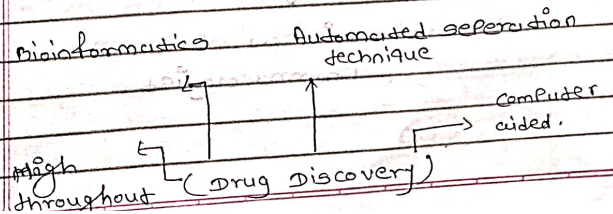 Bioinformatics
Automated seperation
technique
computer
aided.
High
throughout
(Drug Discovery)